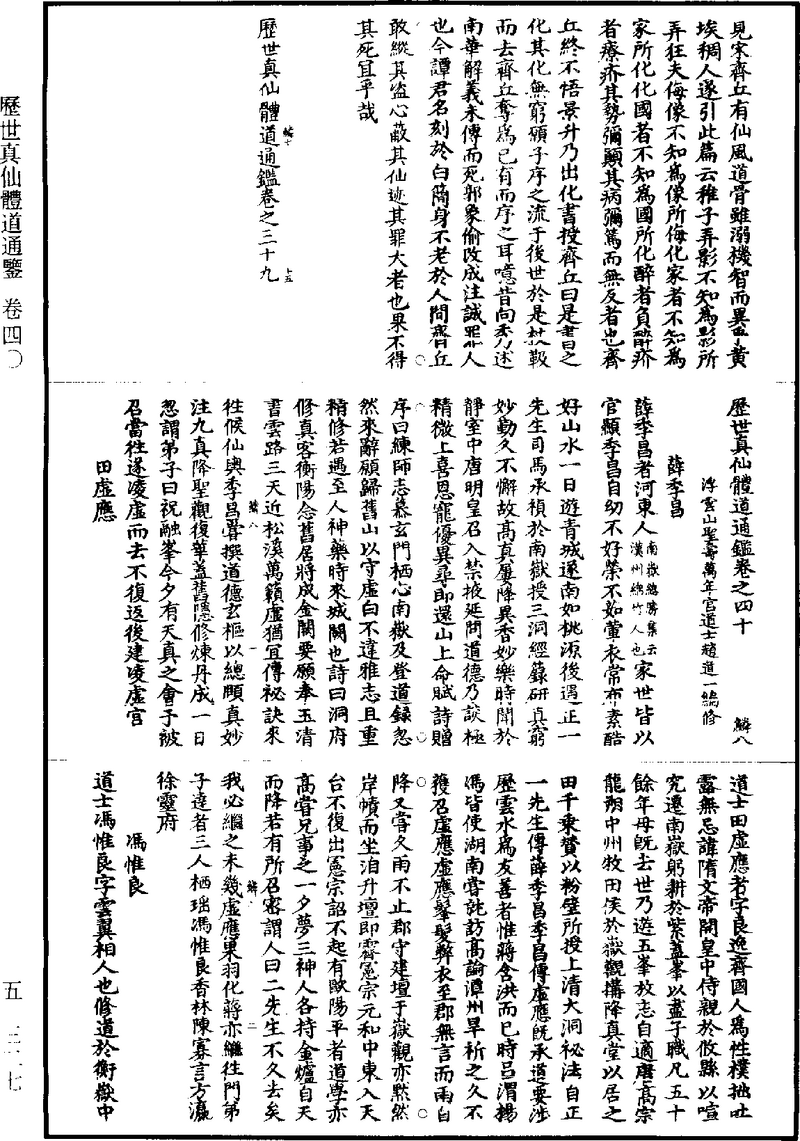 歷世真仙體道通鑒 卷四〇
五—三一七
見宋齊丘有仙風道骨雖溺機智而異乎黃
埃稠人遂引此篇云稚子弄影不知為影所
弄狂夫侮像不知為像所侮化家者不知為
家所化化國者不知為國所化醉者負醉疥
者療疥其勢彌顛其病彌篤而無反者也齊
丘終不悟景升乃出化書授齊丘曰是書之
化其化無窮願子序之流于後世於是杖靸
而去齊丘奪為己有而序之耳噫昔向秀述
南華解義未傳而死郭象偷改成注誠罪人
也今譚君名刻於白簡身不老於人間齊丘
敢縱其盜心蔽其仙迹其罪大者也果不得
其死宜乎哉
歷世真仙體道通鑑卷之三十九
歷世真仙體道通鑑卷之四十 鱗八
浮雲山聖壽萬年宮道士趙道一編修
薛季昌
薛季昌者河東人南嶽總勝集云漢州綿竹人也家世皆以
官顯季昌自幼不好榮不茹葷衣常布素酷
好山水一日遊青城還南如桃源後遇正一
先生司馬承禎於南嶽授三洞經籙研真窮
妙勤久不懈故高真屢降異香妙樂時聞於
靜室中唐明皇召入禁掖延問道德乃談極
精微上喜恩寵優異尋即還山上命賦詩贈
序曰練師志慕玄門栖心南嶽及登道錄忽
然來辭願歸舊山以守虛白不違雅志且重
精修若遇至人神藥時來城闕也詩曰洞府
修真客衡陽念舊居將成金闕要願奉玉清
書雲路三天近松溪萬籟虛猶宜傳祕訣來
往候仙輿季昌嘗撰道德玄樞以總頤真妙
注九真降聖觀復華蓋舊隱修煉丹成一日
忽謂弟子曰祝融峯今夕有天真之會予被
召當往遂凌虛而去不復返後建凌虛宮
田虛應
道士田虛應者字良逸齊國人為性樸拙吐
露無忌諱隋文帝開皇中侍親於攸縣以喧
究遷南嶽躬耕於紫蓋峯以盡子職凡五十
餘年母既去世乃遊五峯放志自適唐高宗
龍朔中州牧田侯於嶽觀搆降真堂以居之
田千乘嘗以粉壁所授上清大洞祕法自正
一先生傳薛季昌季昌傳虛應既承道要涉
歷雲水為友善者惟蔣含洪而已時呂渭楊
馮皆使湖南嘗詫訪高論潭州旱祈之久不
獲召虛應虛應鬅髮弊衣至郡無言而雨自
降又嘗久雨不止郡守建壇于嶽觀亦黙然
岸幘而坐洎升壇即霽憲宗元和中東入天
台不復出憲宗詔不起有歐陽平者道學亦
高嘗兄事之一夕夢三神人各持金爐自天
而降若有所召密謂人曰二先生不久去矣
我必繼之未幾虛應果羽化蔣亦繼往門弟
子達者三人栖瑤馮惟良香林陳寡言方瀛
徐靈府
馮惟良
道士馮惟良字雲翼相人也修道於衡嶽中